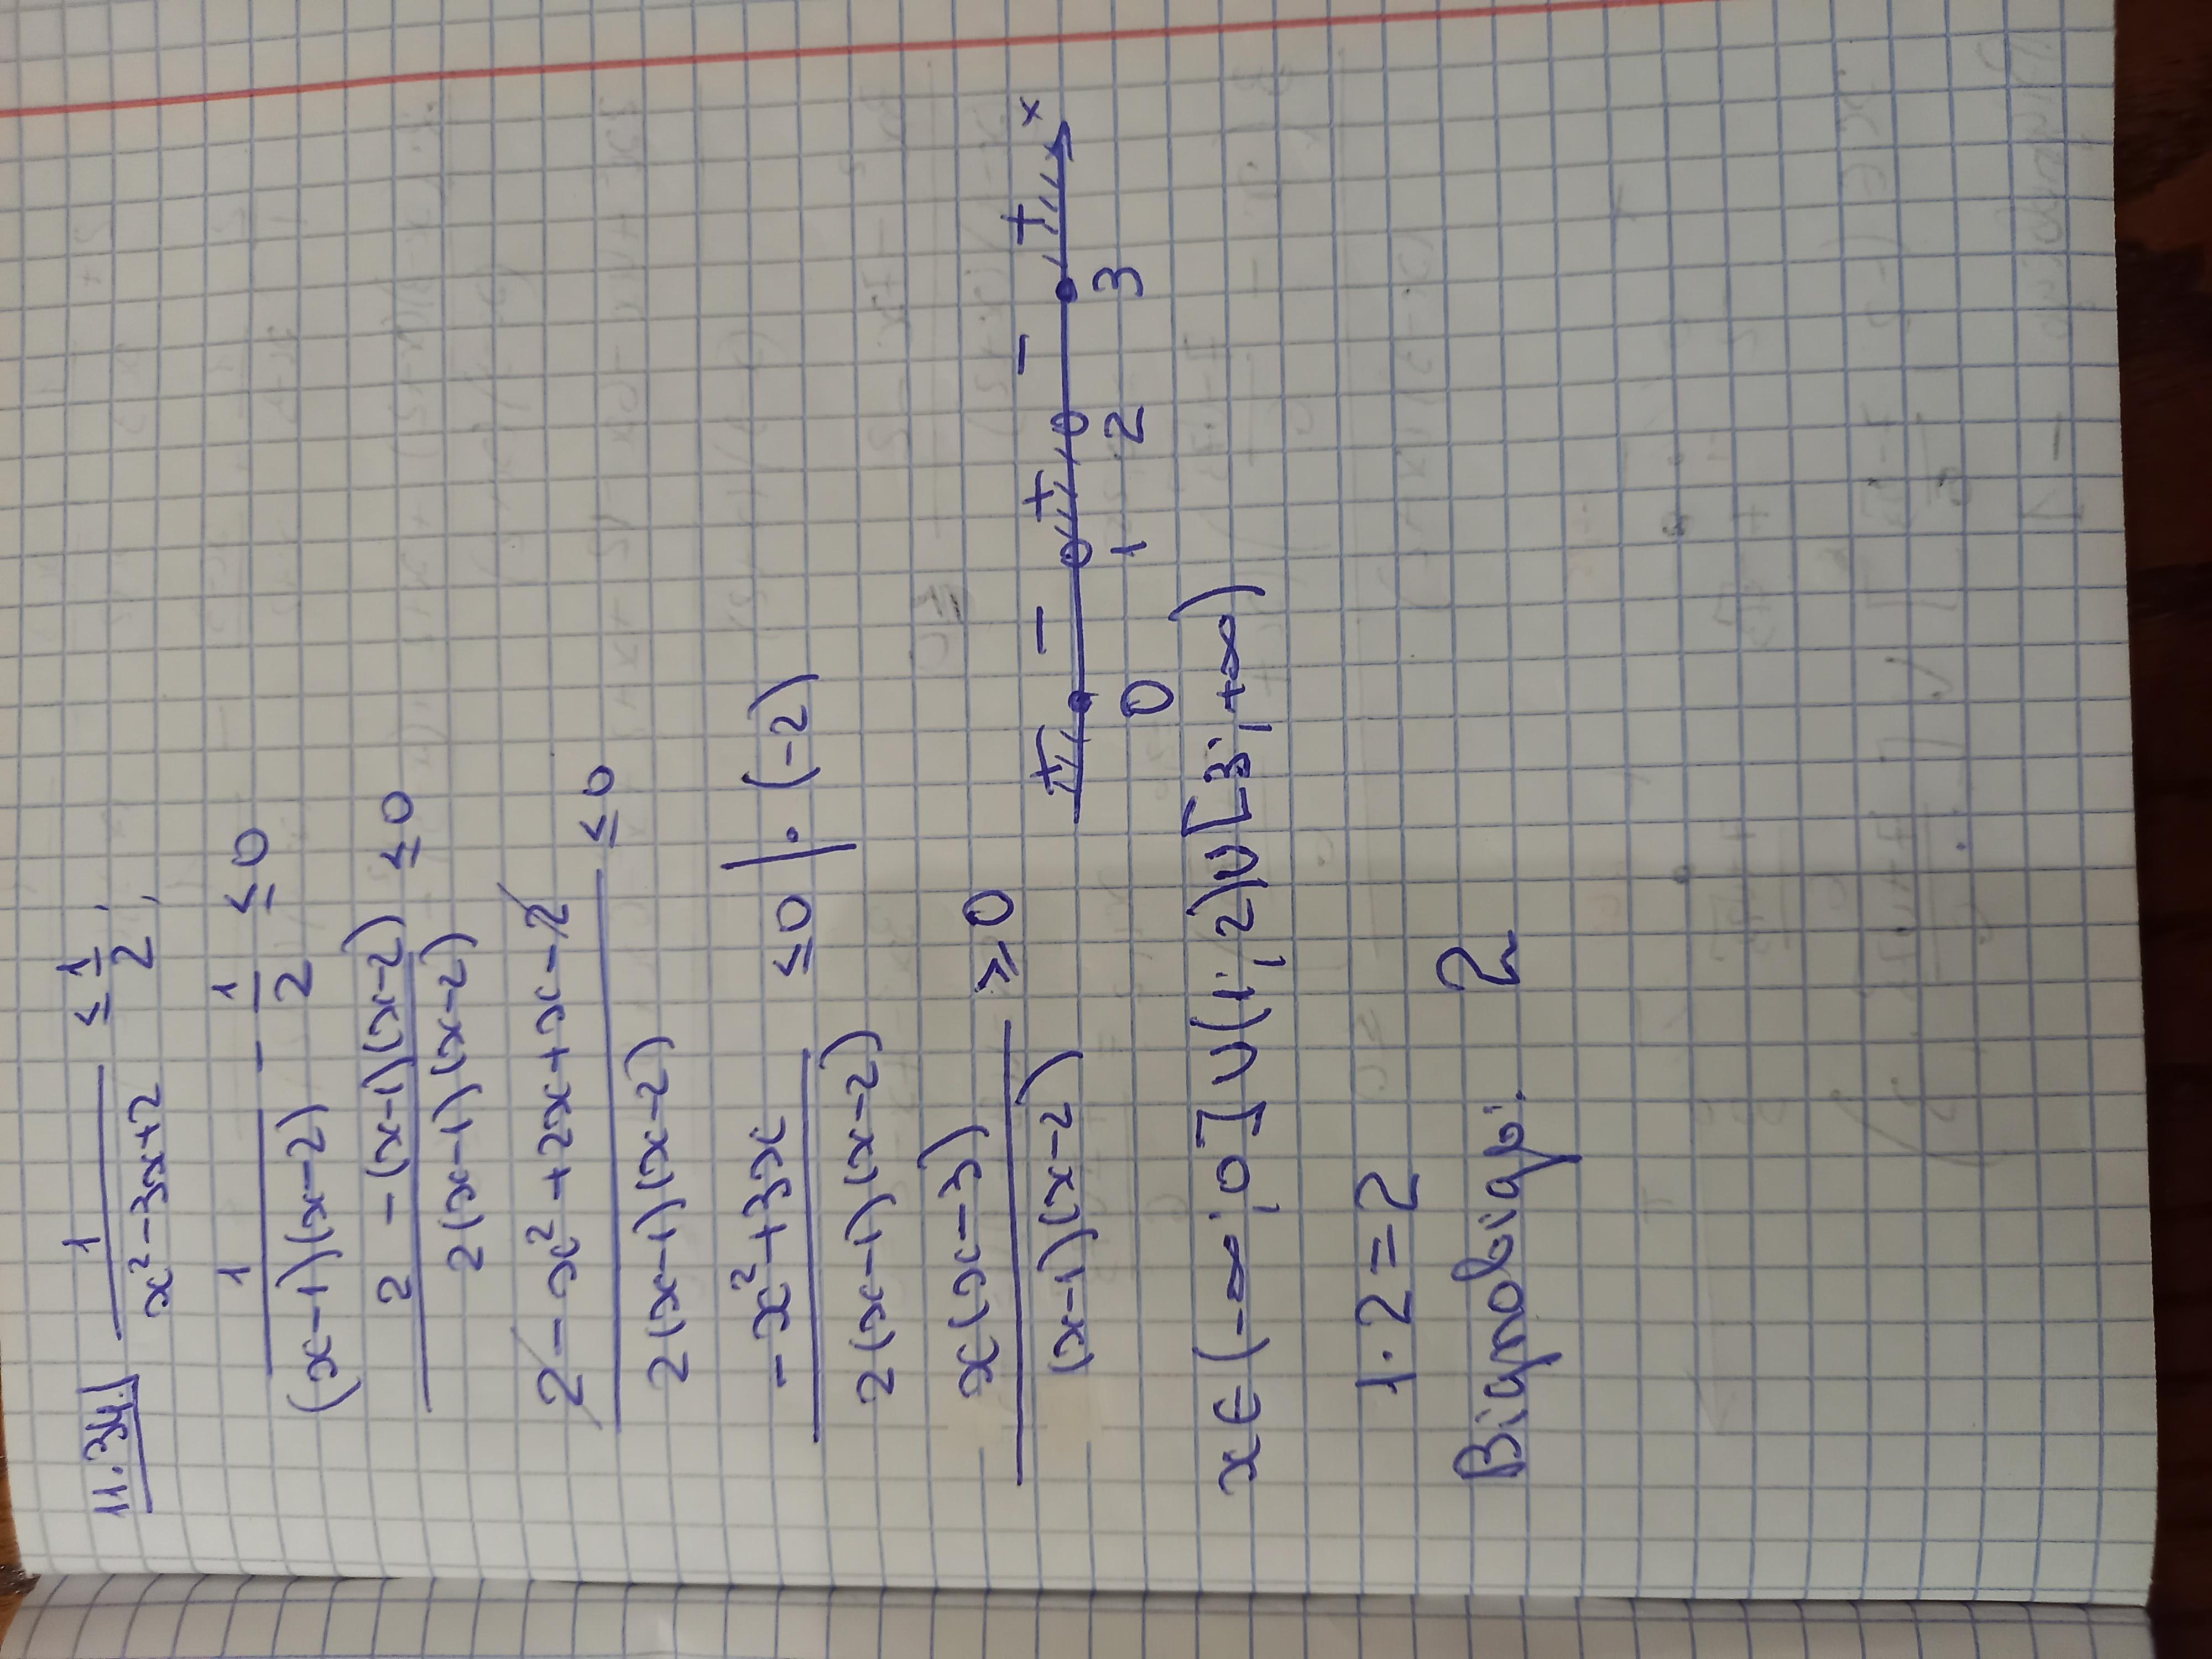 11.34. 1/(x²-3x+2) ≤ 1/2;
1/((x-1)(x-2)) - 1/2 ≤ 0
(2 -(x-1)(x-2))/(2(x-1)(x-2)) ≤ 0
(2-x²+2x+x-2)/(2(x-1)(x-2)) ≤ 0
(-x²+3x)/(2(x-1)(x-2)) ≤ 0 | · (-2)
x(x-3)/((x-1)(x-2)) ≥ 0
+ - + - + x
0 1 2 3
x∈(-∞;0]∪(1;2)∪[3;+∞)
1·2=2
Відповідь: 2